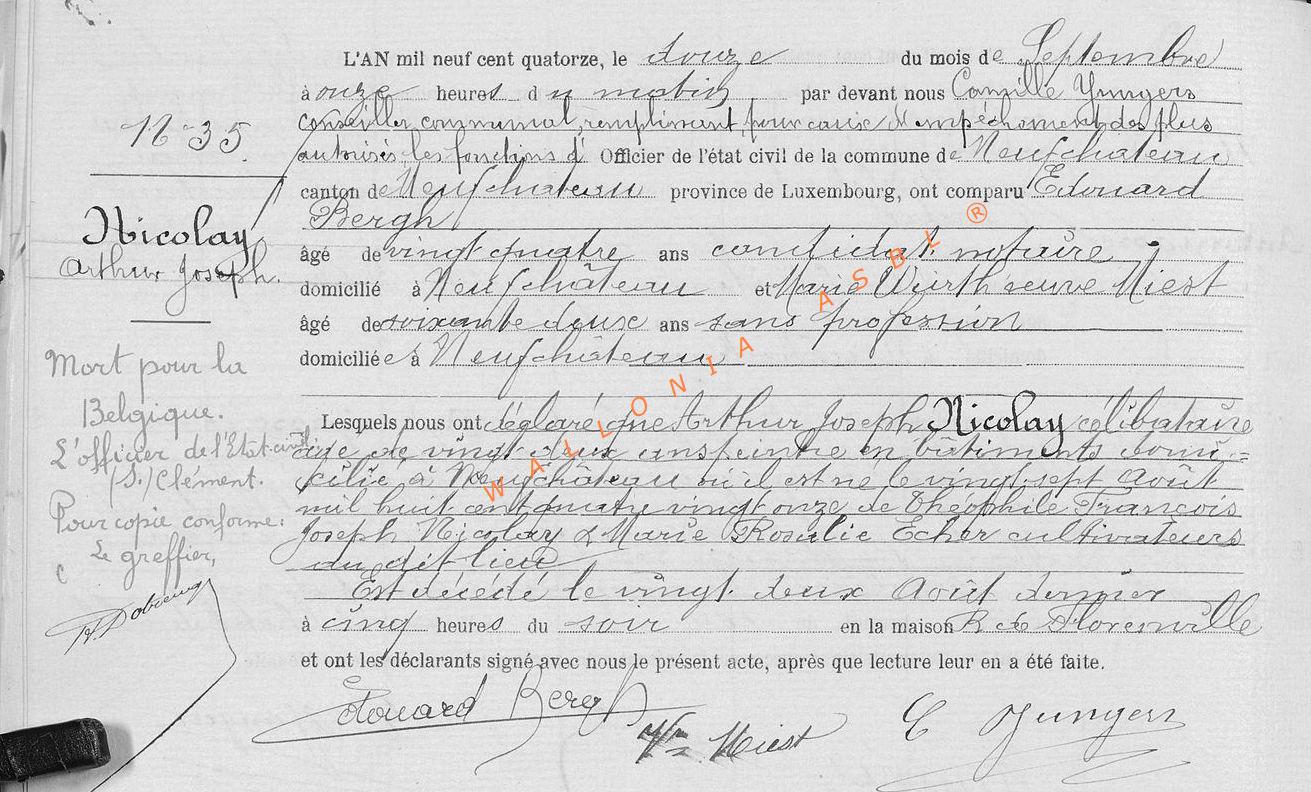 N° 35
Nicolay
Arthur Joseph.
Mort pour la
Belgique.
L'officier de l'Etat-civil
(S.) Clément.
Pour copie conforme:
Le greffier,
L'AN mil neuf cent quatorze, le douze du mois de Septembre
à onze heures du matin par devant nous Camille Jungers
conseiller communal, remplissant, pour cause d'empêchement des plus
autorisés les fonctions d' Officier de l'état civil de la commune de Neufchateau
canton de Neufchâteau province de Luxembourg, ont comparu Edouard
Bergh
âgé de vingt quatre ans candidat notaire
domicilié à Neufchâteau et Marie Würth veuve Niest
âgé de soixante deux ans sans profession
domiciliée à Neufchâteau
Lesquels nous ont déclaré que Arthur Joseph Nicolay célibataire
âgé de vingt-deux ans peintre en bâtiments domi-
cilié à Neufchâteau où il est né le vingt-sept Août
mil huit cent quatre vingt onze de Théophile François
Joseph Nicolay & Marie Rosalie Echer cultivateurs
du dit lieu
Est décédé le vingt-deux Août dernier
à cinq heures du soir en la maison R. de Florenville
et ont les déclarants signé avec nous le présent acte, après que lecture leur en a été faite.
Edouard Bergh
Vve Niest
C Jungers
WALLONIA ASBL ®